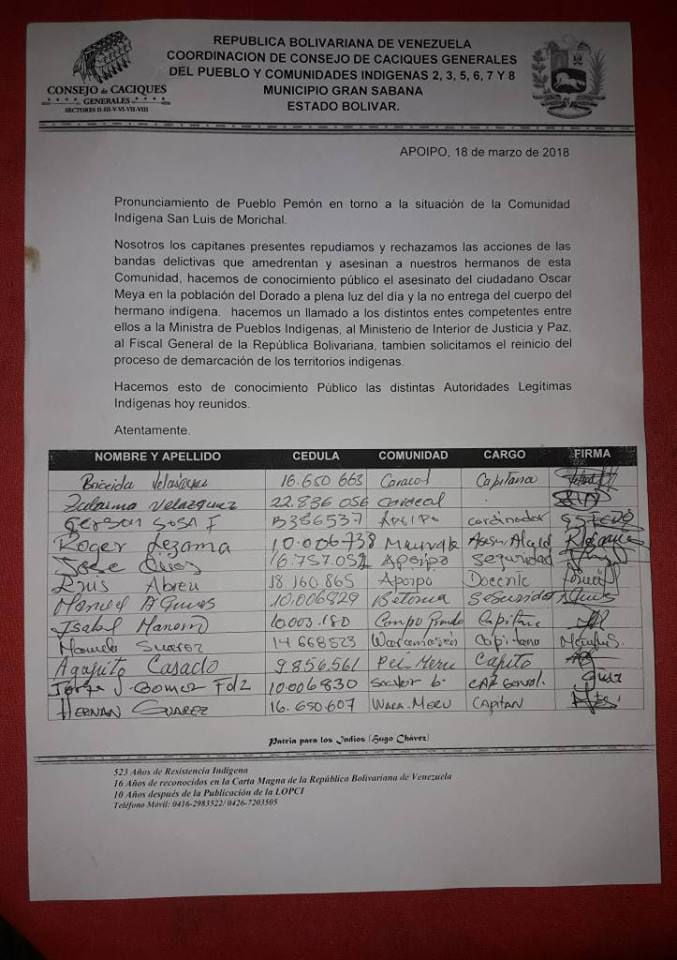 REPUBLICA BOLIVARIANA DE VENEZUELA
COORDINACION DE CONSEJO DE CACIQUES GENERALES
DEL PUEBLO Y COMUNIDADES INDIGENAS 2, 3, 5, 6, 7 Y 8
MUNICIPIO GRAN SABANA
ESTADO BOLIVAR.
CONSEJO de CACIQUES
GENERALES
SECTORES II-III-V-VI-VII-VIII
APOIPO, 18 de marzo de 2018
Pronunciamiento de Pueblo Pemón en torno a la situación de la Comunidad
Indígena San Luis de Morichal.
Nosotros los capitanes presentes repudiamos y rechazamos las acciones de las
bandas delictivas que amedrentan y asesinan a nuestros hermanos de esta
Comunidad, hacemos de conocimiento público el asesinato del ciudadano Oscar
Meya en la población del Dorado a plena luz del día y la no entrega del cuerpo del
hermano indígena. hacemos un llamado a los distintos entes competentes entre
ellos a la Ministra de Pueblos Indígenas, al Ministerio de Interior de Justicia y Paz,
al Fiscal General de la República Bolivariana, tambien solicitamos el reinicio del
proceso de demarcación de los territorios indigenas.
Hacemos esto de conocimiento Público las distintas Autoridades Legítimas
Indígenas hoy reunidos.
Atentamente.
NOMBRE Y APELLIDO CEDULA COMUNIDAD CARGO FIRMA
Briceida 16.650 663 Capitana
Zulaima Velazquez 22.836 056
Gerson Sosa F
Roger Lezama 10.006738
Jose Apoipo Seguridad
Luis Abreu 18 160.865 Apoipo Docente
Manuel 10.006829
Isabel 10.003.180
Manuela Suarez 14 668523
Agapito Casado 9.856.561
Jorge J. Gomez 10.006830
HERNAN SUAREZ 16.650.607 WARA-MERU CAPITAN
Patria para los Indios (Hugo Chávez)
523 Años de Resistencia Indígena
16 Años de reconocidos en la Carta Magna de la República Bolivariana de Venezuela
10 Años después de la Publicación de la LOPCI
Teléfono Móvil: 0416-2983522/ 0426-7203505